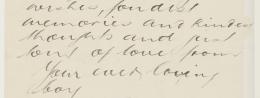 wishes, fondest
memories and kindest
thoughts and just
lots of love from
Your ever loving
boy